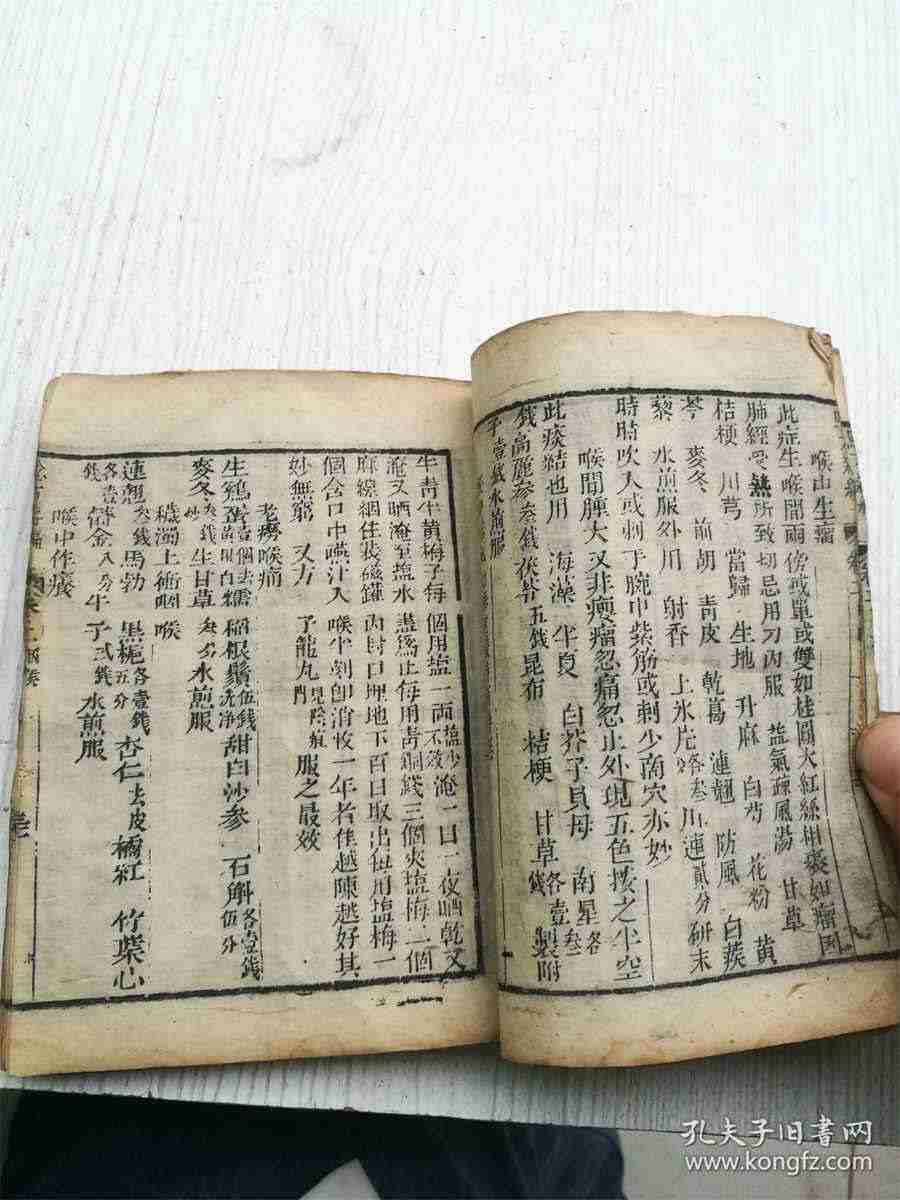 喉中生瘤
此症生喉間兩傍或單或雙如桂圓大紅絲相裹如瘤因
肺經受熱所致切忌用刀內服益氣疎風湯甘草
桔梗川芎當歸生地升麻白芍花粉黃
芩麥冬前胡青皮乾葛連翹防風白蒺
藜水煎服外用射香上氷片各叁川連貳分研末
時時吹入或刺手腕中紫筋或刺少商穴亦妙
喉間腫大又非癭瘤忽痛忽止外現五色按之半空
此痰結也用海藻半夏白芥子貝母南星各叁
錢高麗參叁錢茯苓五錢昆布桔梗甘草各壹錢製附
子壹錢水煎服
牛青牛黃梅子每個用塩一兩塩少不效淹一日一夜晒乾又
淹又晒淹至塩水盡爲止每用青銅錢三個夾塩梅二個
麻線綑住裝磁罐內封口埋地下百日取出每用塩梅一
個含口中嚥汁入喉半刻卽消收一年者佳越陳越好其
妙無窮又方子龍丸見陰疽門服之最效
老癆喉痛
生鷄蛋壹個去糯稻根鬚伍錢洗淨甜白沙參石斛各壹錢伍分
麥冬叁錢生甘草水煎服
穢濁上衝咽喉
連翹叁錢馬勃黑梔各壹錢五分杏仁去皮橘紅竹葉心
各壹錢鬱金八分牛子貳錢水煎服
喉中作癢
孔夫子旧書网
www.kongfz.com